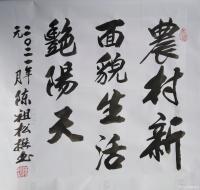 農村新
面貌生活
艷陽天
二〇二一年
元月陈祖松撰书